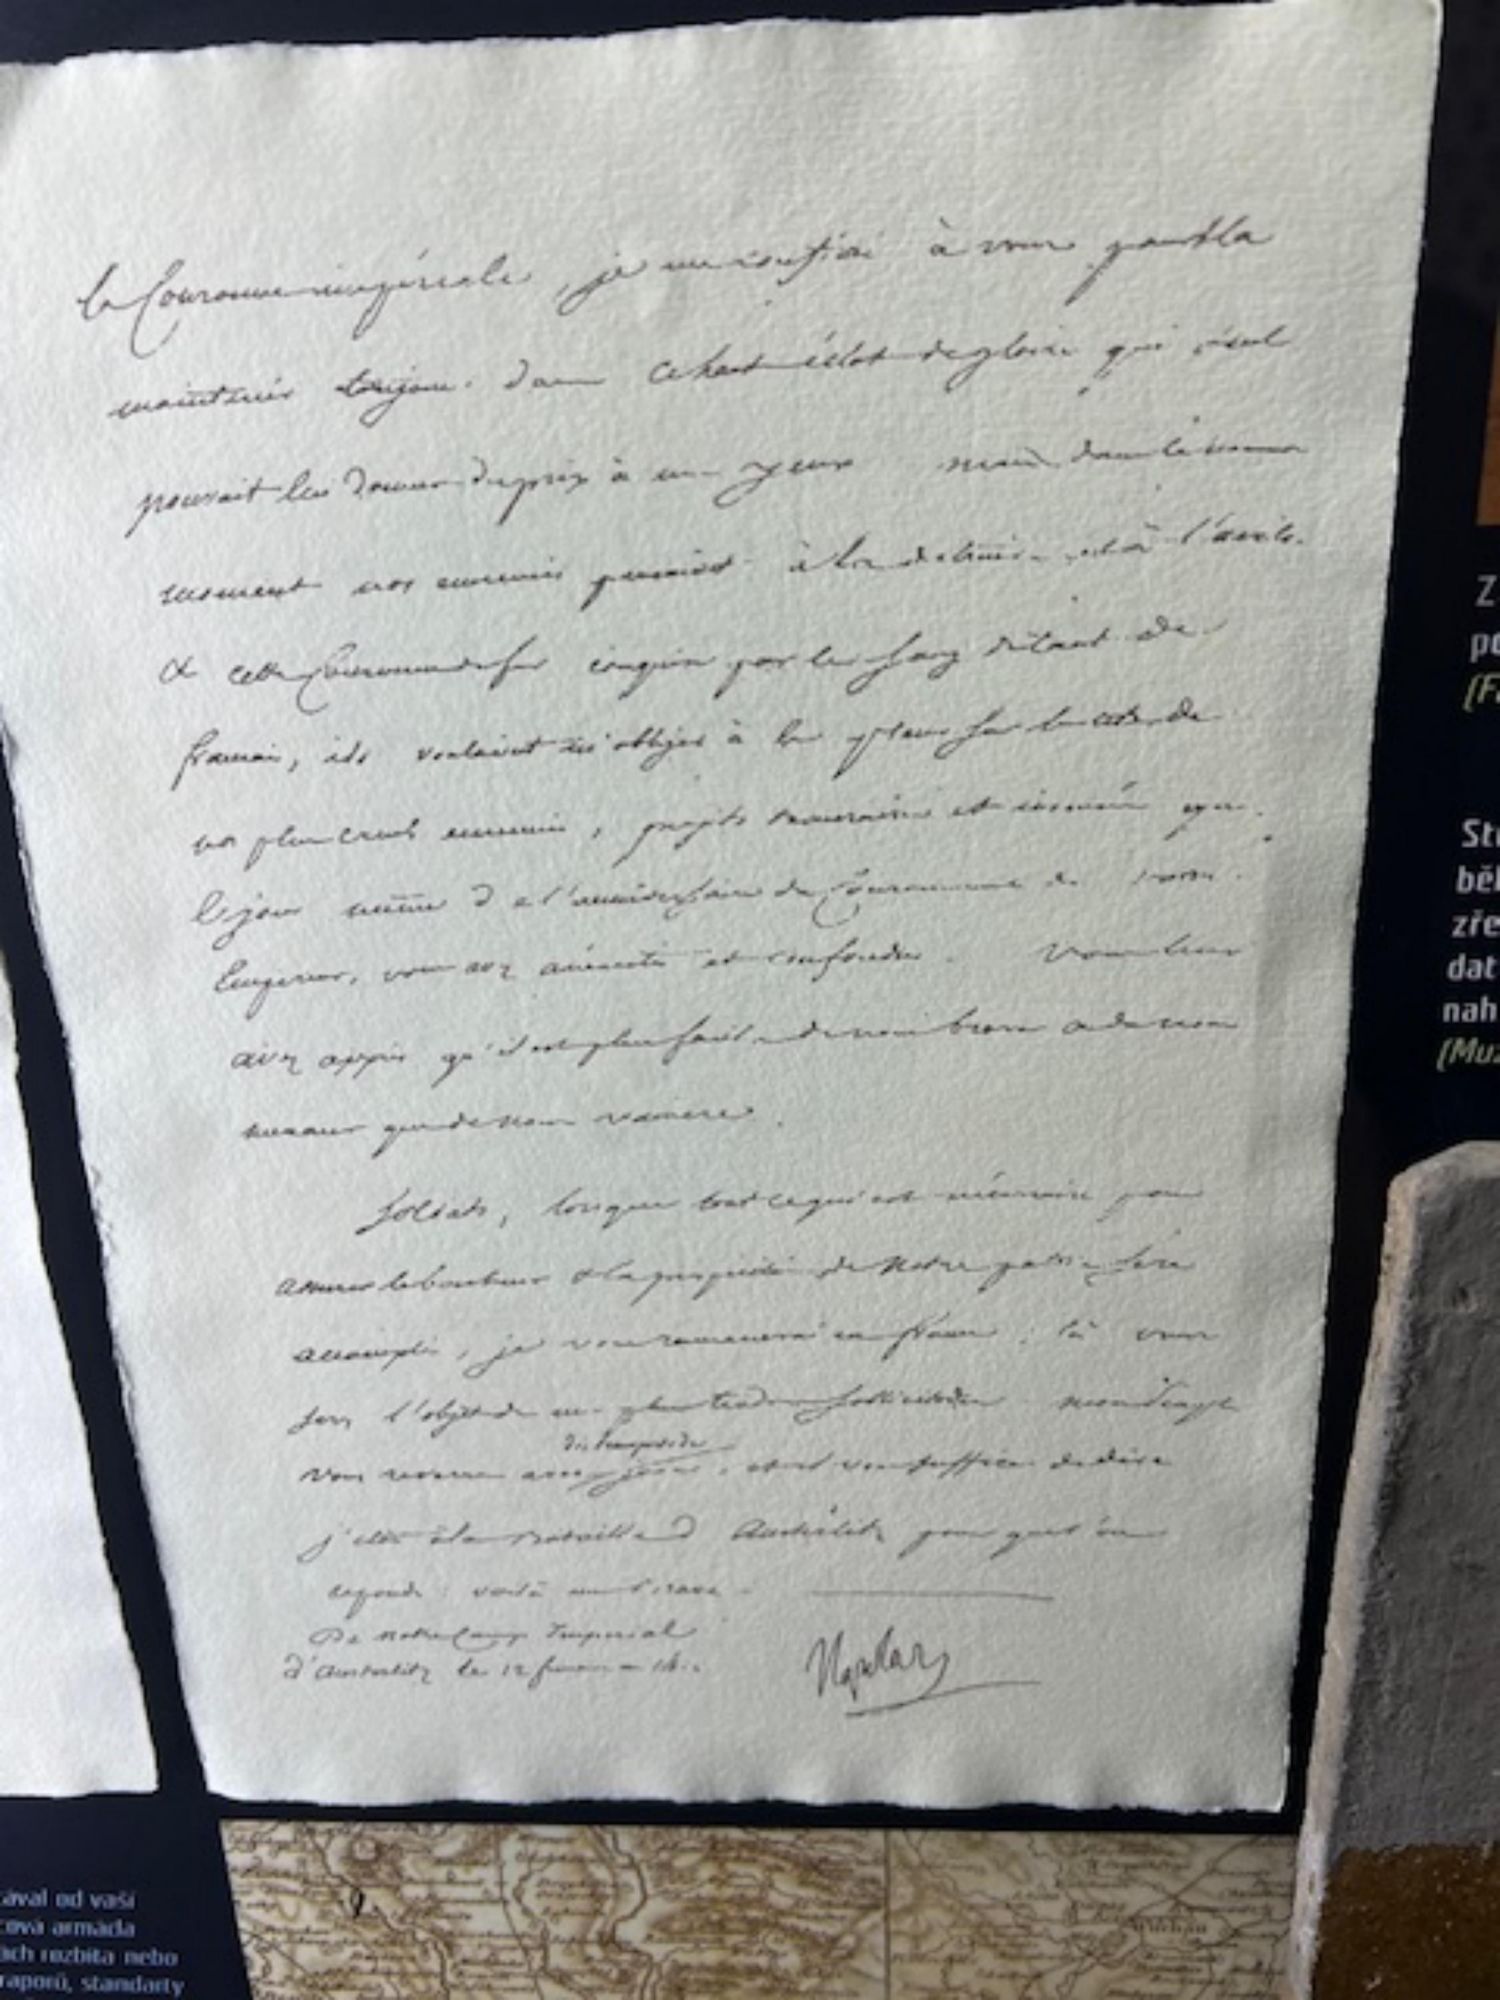 la Couronne impériale, je me confiai à vous pour la
maintenir toujours dans ce haut éclat de gloire qui seul
pouvait lui donner du prix à mes yeux mais dans le même
moment nos ennemis pensaient à la détruire et à l'avilir
& cette Couronne de fer conquise par le sang de tant de
français, ils voulaient m'obliger à la placer sur la tête de
nos plus cruels ennemis, projets téméraires et insensés que
le jour même de l'anniversaire du Couronnement de votre
Empereur, vous avez anéantis et confondus. Vous leur
avez appris qu'il est plus facile de nous braver et de nous
menacer que de nous vaincre.
Soldats, lorsque tout ce qui est nécessaire pour
assurer le bonheur & la prospérité de Notre patrie sera
accompli, je vous ramenerai en france; là vous
serez l'objet de mes plus tendres sollicitudes. mon peuple
vous reverra avec joie, et il vous suffira de dire
j'étais à la Bataille d'Austerlitz pour que l'on
réponde: voilà un brave.
De Notre Camp Imperial
d'Austerlitz le 12 frimaire 14
Napoleon
Z
po
(F
St
běl
zře
dat
nah
(Muz
ával od vaší
cova armáda
ách rozbita nebo
raporů, standarty